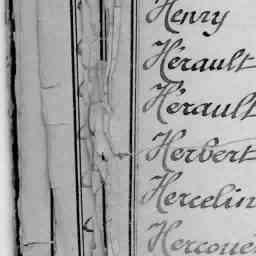 Henry
Hérault
Hérault
Herbert
Hercelin
Hercoué